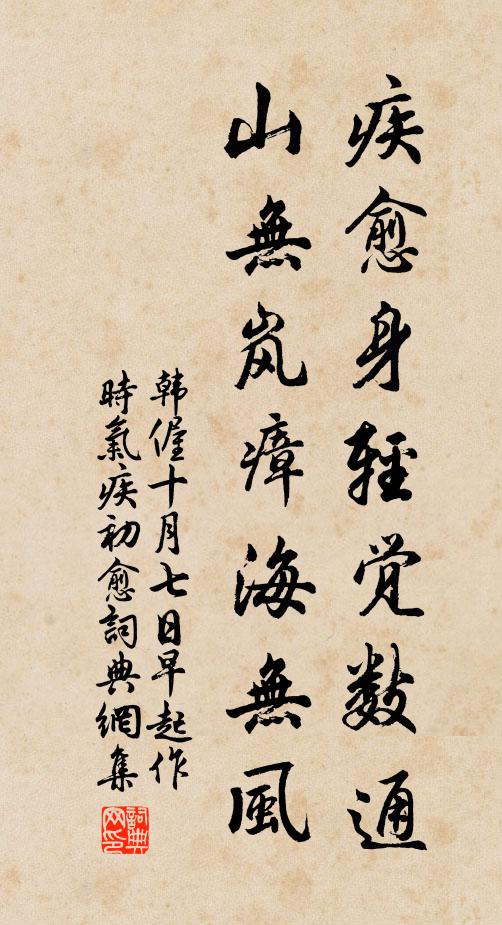 疾愈身輕觉数通
山無岚瘴海無風
韩偓十月七日早起作
時氣疾初愈詞典網集
詞典网印